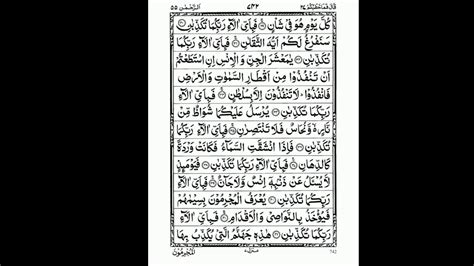 قَالَ فَمَا خَطْبُكُمْ ٢٧ ٧٤٢ اَلرَّحْمٰن ٥٥
كُلَّ يَوْمٍ هُوَ فِيْ شَاْنٍ ۚ فَبِاَيِّ اٰلَآءِ رَبِّكُمَا تُكَذِّبٰنِ
سَنَفْرُغُ لَكُمْ اَيُّهَ الثَّقَلٰنِ ۚ فَبِاَيِّ اٰلَآءِ رَبِّكُمَا
تُكَذِّبٰنِ يٰمَعْشَرَ الْجِنِّ وَالْاِنْسِ اِنِ اسْتَطَعْتُمْ
اَنْ تَنْفُذُوْا مِنْ اَقْطَارِ السَّمٰوٰتِ وَالْاَرْضِ
فَانْفُذُوْا ؕ لَا تَنْفُذُوْنَ اِلَّا بِسُلْطٰنٍ ۚ فَبِاَيِّ اٰلَآءِ
رَبِّكُمَا تُكَذِّبٰنِ يُرْسَلُ عَلَيْكُمَا شُوَاظٌ مِّنْ
نَّارٍ ۙ وَّنُحَاسٌ فَلَا تَنْتَصِرٰنِ ۚ فَبِاَيِّ اٰلَآءِ رَبِّكُمَا
تُكَذِّبٰنِ فَاِذَا انْشَقَّتِ السَّمَآءُ فَكَانَتْ وَرْدَةً
كَالدِّهَانِ ۚ فَبِاَيِّ اٰلَآءِ رَبِّكُمَا تُكَذِّبٰنِ فَيَوْمَئِذٍ
لَّا يُسْـَٔلُ عَنْ ذَنْۢبِهٖٓ اِنْسٌ وَّلَا جَآنٌّ ۚ فَبِاَيِّ اٰلَآءِ
رَبِّكُمَا تُكَذِّبٰنِ يُعْرَفُ الْمُجْرِمُوْنَ بِسِيْمٰهُمْ
فَيُؤْخَذُ بِالنَّوَاصِيْ وَالْاَقْدَامِ ۚ فَبِاَيِّ اٰلَآءِ
رَبِّكُمَا تُكَذِّبٰنِ هٰذِهٖ جَهَنَّمُ الَّتِيْ يُكَذِّبُ بِهَا
منزل ٧ الْمُجْرِمُوْنَ